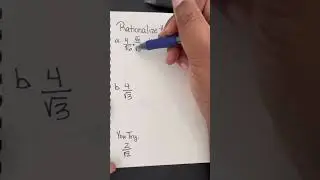 Rationalize
a. 4/√6 · √6/√6
b. 4/√3
You Try:
2/√2